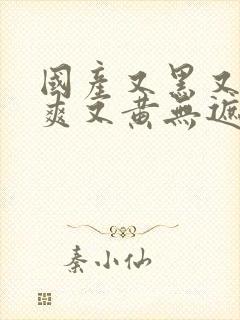 國產又黑又
爽又黄無遮
秦小仙